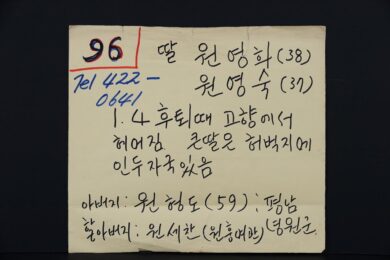 96
Tel 422-
0641
딸 원영희(38)
원영숙(37)
1.4 후퇴때 고향에서
헤어짐 큰딸은 허벅지에
인두자국있음
아버지: 원형도(59): 평남
할아버지: 원세찬(원흥여관) 영원군